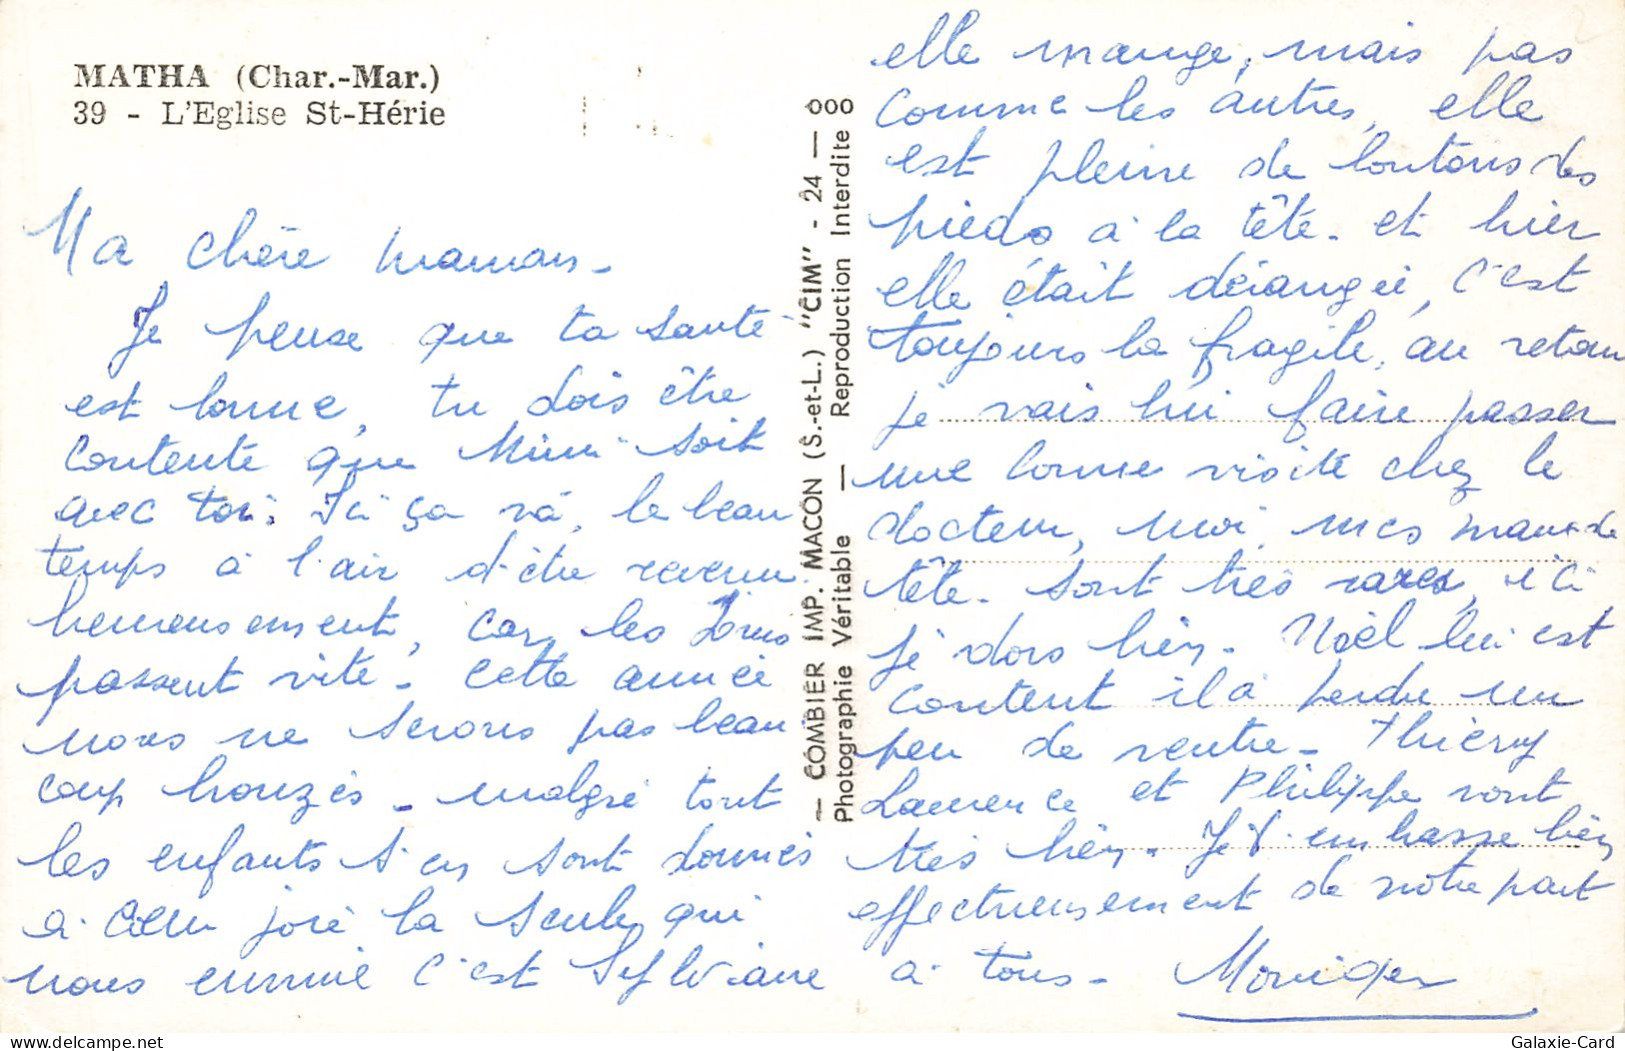 MATHA (Char.-Mar.)
39 - L'Eglise St-Hérie
Ma chère maman -
Je pense que ta santé
est bonne, tu dois être
contente que Mimi soit
avec toi. Ici ça va, le beau
temps à l'air d'être revenu
heureusement, car les jours
passent vite - cette année
nous ne serons pas beau
coup bronzés - malgré tout
les enfants s'en sont donnés
à coeur joie la seule qui
nous ennuie c'est Sylviane
— COMBIER IMP. MACON (S.-et-L.) "CIM" - 24 — 000
Photographie Véritable — Reproduction Interdite
elle mange, mais pas
comme les autres, elle
est pleine de boutons des
pieds à la tête - et hier
elle était dérangée, c'est
toujours la fragile, au retour
je vais lui faire passer
une bonne visite chez le
docteur, moi, mes maux de
tête - sont très rares, ici
je dors bien - Noël lui est
content il a perdu un
peu de ventre - Thierry
Laurence et Philippe vont
très bien - Je t'embrasse bien
affectueusement de notre part
à tous - Monique
Galaxie-Card